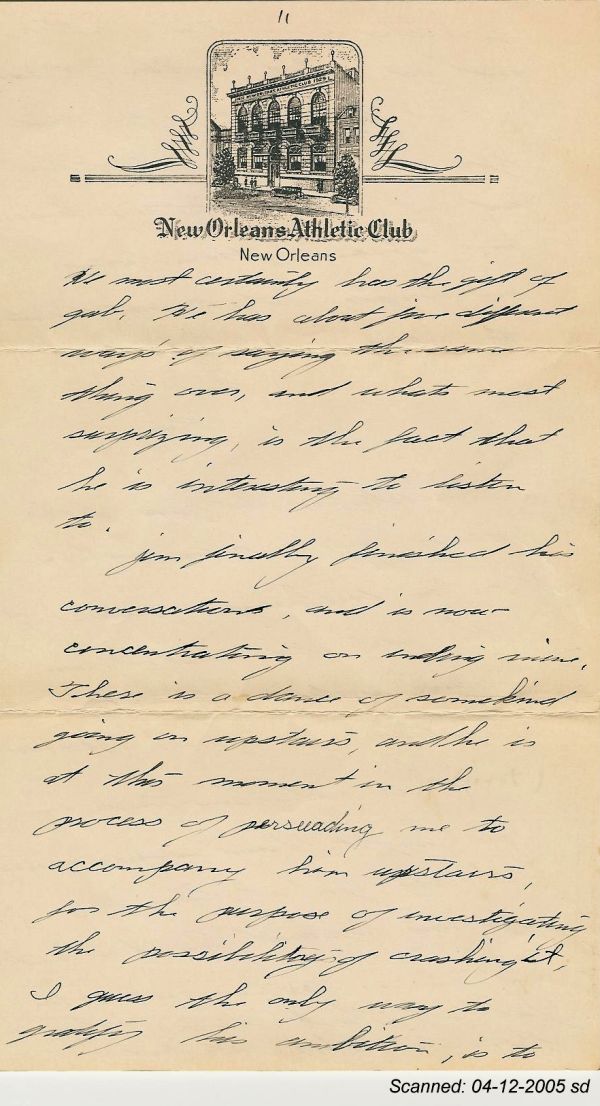 11
NEW ORLEANS ATHLETIC CLUB 1929
New Orleans Athletic Club
New Orleans
He most certainly has the gift of
gab. He has about five different
ways of saying the same
thing over, and whats most
surprizing, is the fact that
he is interesting to listen
to.
Jim finally finished his
conversation, and is now
concentrating on ending mine.
There is a dance of somekind
going on upstairs, and he is
at this moment in the
process of persuading me to
accompany him upstairs,
for the purpose of investigating
the possibility of crashing it,
I guess the only way to
gratify his ambition, is to
Scanned: 04-12-2005 sd